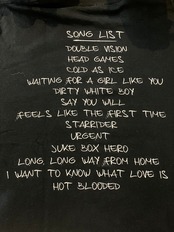 SONG LIST
DOUBLE VISION
HEAD GAMES
COLD AS ICE
WAITING FOR A GIRL LIKE YOU
DIRTY WHITE BOY
SAY YOU WILL
FEELS LIKE THE FIRST TIME
STARRIDER
URGENT
JUKE BOX HERO
LONG, LONG WAY FROM HOME
I WANT TO KNOW WHAT LOVE IS
HOT BLOODED